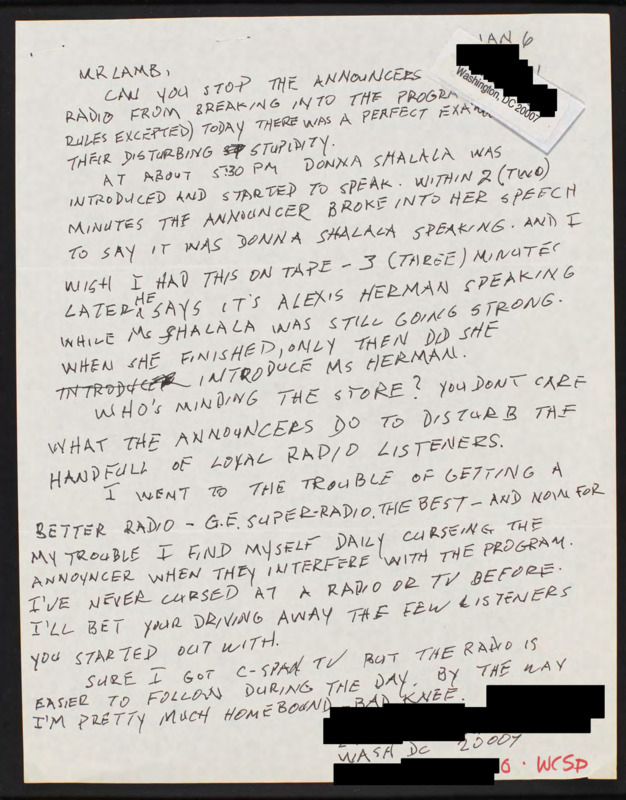 JAN 6
Washington, DC 20007
MR LAMB,
CAN YOU STOP THE ANNOUNCERS
RADIO FROM BREAKING INTO THE PROGRA
RULES EXCEPTED) TODAY THERE WAS A PERFECT EXAM
THEIR DISTURBING STUPIDITY.
AT ABOUT 5:30 PM DONNA SHALALA WAS
INTRODUCED AND STARTED TO SPEAK. WITHIN 2 (TWO)
MINUTES THE ANNOUNCER BROKE INTO HER SPEECH
TO SAY IT WAS DONNA SHALALA SPEAKING. AND I
WISH I HAD THIS ON TAPE - 3 (THREE) MINUTES
LATER HE SAYS IT'S ALEXIS HERMAN SPEAKING
WHILE Ms SHALALA WAS STILL GOING STRONG.
WHEN SHE FINISHED, ONLY THEN DID SHE
INTRODUCE Ms HERMAN.
WHO'S MINDING THE STORE? YOU DONT CARE
WHAT THE ANNOUNCERS DO TO DISTURB THE
HANDFULL OF LOYAL RADIO LISTENERS.
I WENT TO THE TROUBLE OF GETTING A
BETTER RADIO - G.E. SUPER-RADIO. THE BEST - AND NOW FOR
MY TROUBLE I FIND MYSELF DAILY CURSEING THE
ANNOUNCER WHEN THEY INTERFERE WITH THE PROGRAM.
I'VE NEVER CURSED AT A RADIO OR TV BEFORE.
I'LL BET YOUR DRIVING AWAY THE FEW LISTENERS
YOU STARTED OUT WITH.
SURE I GOT C-SPAN TV BUT THE RADIO IS
EASIER TO FOLLOW DURING THE DAY. BY THE WAY
I'M PRETTY MUCH HOMEBOUND - BAD KNEE.
WASH DC 20007
WCSP